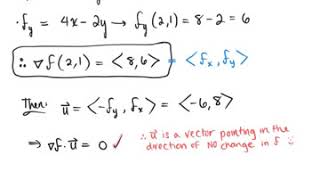 · f_y = 4x - 2y → f_y(2,1) = 8 - 2 = 6
∴ ∇f(2,1) = <8,6> = <f_x, f_y>
Then: u⃗ = <-f_y, f_x> = <-6,8>
⇒ ∇f · u⃗ = 0 ✓ ∴ u⃗ is a vector pointing in the
direction of NO change in f